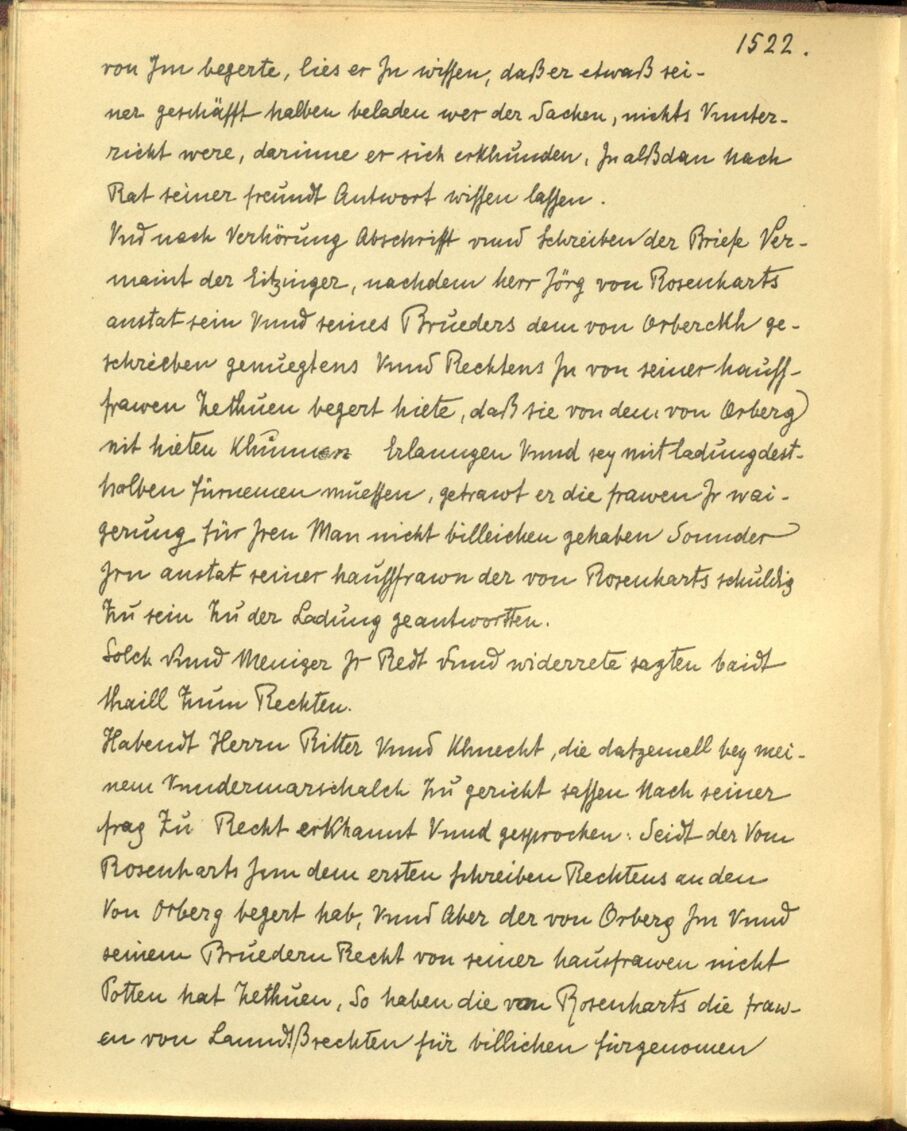 1522.
von Jm begerte, lies er Jn wissen, daß er etwaß sei-
ner geschäfft halben beladen wer der Sachen, nichts Vnnter-
richt were, darinne er sich erkhunden, Jn alßdan nach
Rat seiner freundt Antwort wissen lassen.
Vnd nach Verhörung Abschrifft vnnd Schreiben der Briefe Ver-
maint der Eitzinger, nachdem herr Jörg von Rosenharts
anstat sein Vnnd seines Brueders dem von Orberckh ge-
schrieben genuegtens Vnnd Rechtens Jn von seiner hauss-
frawen Zethuen begert hiete, daß sie von dem von Orberg
nit hieten Khünnen Erlanngen Vnnd sey mit ladung dest-
halben fürnemen muessen, getrawt er die frawen Jr wai-
gerung für Jren Man nicht billeichen gehaben Sonnder
Jrn anstat seiner haussfrawn der von Rosenharts schuldig
Zu sein Zu der Ladung geantwortten.
Solch Vnnd Meniger Jr Redt Vnnd widerrete sagten baidt
thaill Zum Rechten.
Habendt Herrn Ritter Vnnd Khnecht, die datzemall bey mei-
nem Vnndermarschalch Zu gericht sassen Nach seiner
frag Zu Recht erkhannt Vnnd gesprochen: Seidt der Vom
Rosenharts Jnn dem ersten schreiben Rechtens an den
Von Orberg begert hab, Vnnd Aber der von Orberg Jm Vnnd
seinem Bruedern Recht von seiner hausfrawen nicht
Potten hat Zethuen, So haben die von Rosenharts die fraw-
en von Lanndtßrechten für billichen fürgenomen